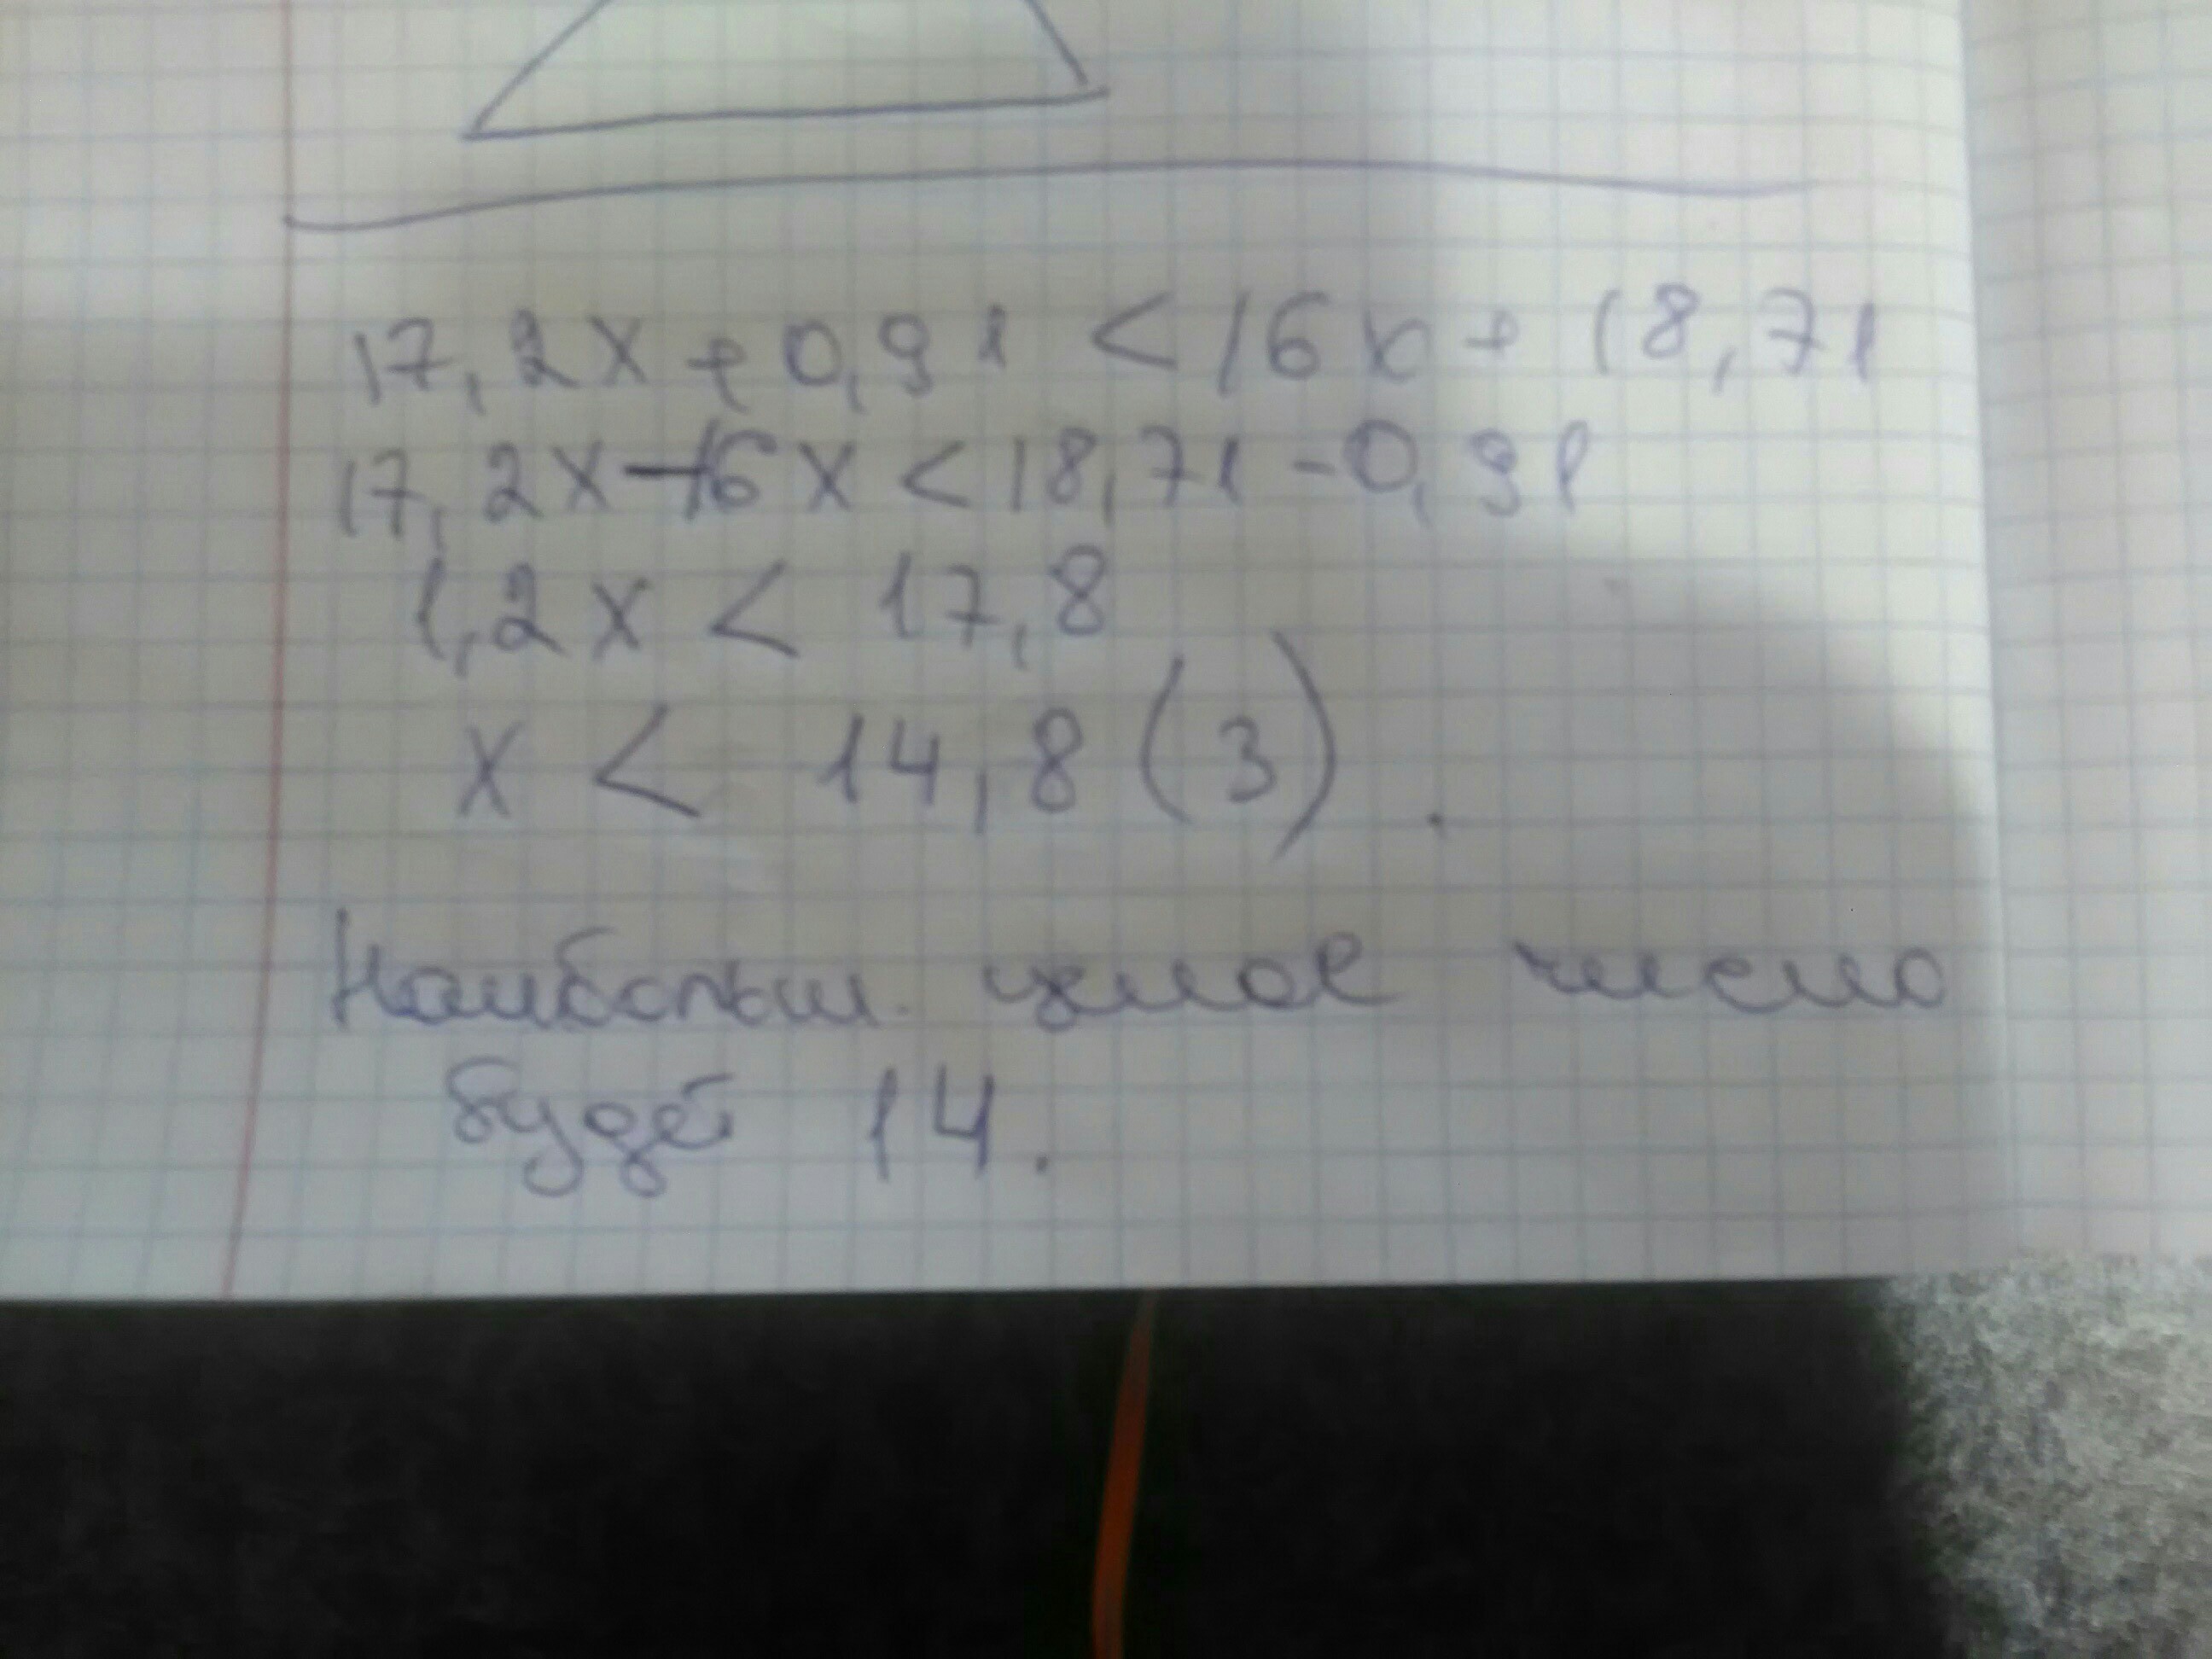 17,2x + 0,91 < 16x + 18,71
17,2x - 16x < 18,71 - 0,91
1,2x < 17,8
x < 14,8(3).
Наибольш. целое число
будет 14.